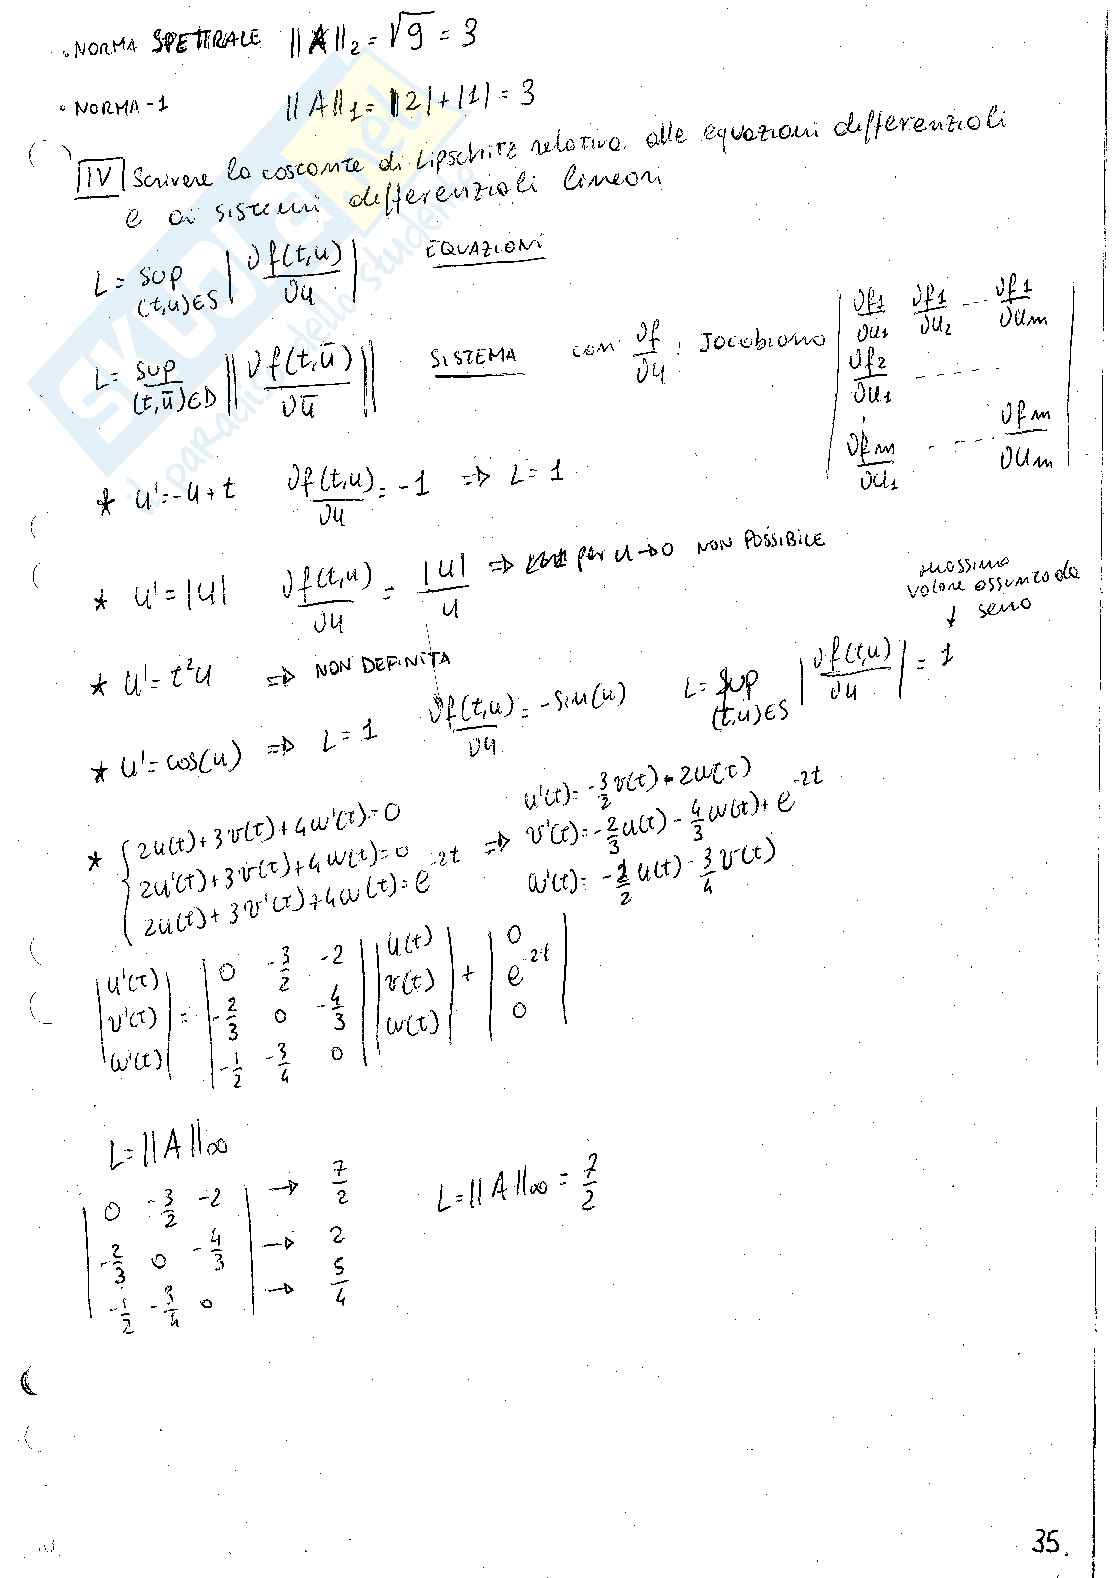 • NORMA SPETTRALE ||A||₂ = √9 = 3
• NORMA-1 ||A||₁ = |2|+|1| = 3
IV Scrivere la costante di Lipschitz relativa alle equazioni differenziali
e ai sistemi differenziali lineari
L = sup (t,u)∈S |∂f(t,u)/∂u| EQUAZIONI
L = sup (t,ū)∈D ||∂f(t,ū)/∂ū|| SISTEMA con ∂f/∂u : Jacobiano | ∂f1/∂u1 ∂f1/∂u2 ... ∂f1/∂um
∂f2/∂u1 - - - - - -
∂fm/∂u1 - - - - ∂fm/∂um |
* u' = -u+t ∂f(t,u)/∂u = -1 => L = 1
* u' = |u| ∂f(t,u)/∂u = |u|/u => per u→0 NON POSSIBILE
* u' = t²u => NON DEFINITA
massimo
valore assunto da
↓ seno
* u' = cos(u) => L = 1 ∂f(t,u)/∂u = -sin(u) L = sup (t,u)∈S |∂f(t,u)/∂u| = 1
* { 2u(t)+3v(t)+4w'(t)=0 u'(t) = -3/2 v(t) - 2w(t)
2u'(t)+3v(t)+4w(t)=0 => v'(t) = -2/3 u(t) - 4/3 w(t) + e^-2t
2u(t)+3v'(t)+4w(t)=e^-2t w'(t) = -1/2 u(t) - 3/4 v(t)
|u'(t)| = | 0 -3/2 -2 | |u(t)| + | 0 |
|v'(t)| | -2/3 0 -4/3 | |v(t)| | e^-2t |
|w'(t)| | -1/2 -3/4 0 | |w(t)| | 0 |
L = ||A||∞
| 0 -3/2 -2 | → 7/2 L = ||A||∞ = 7/2
| -2/3 0 -4/3 | → 2
| -1/2 -3/4 0 | → 5/4
35.